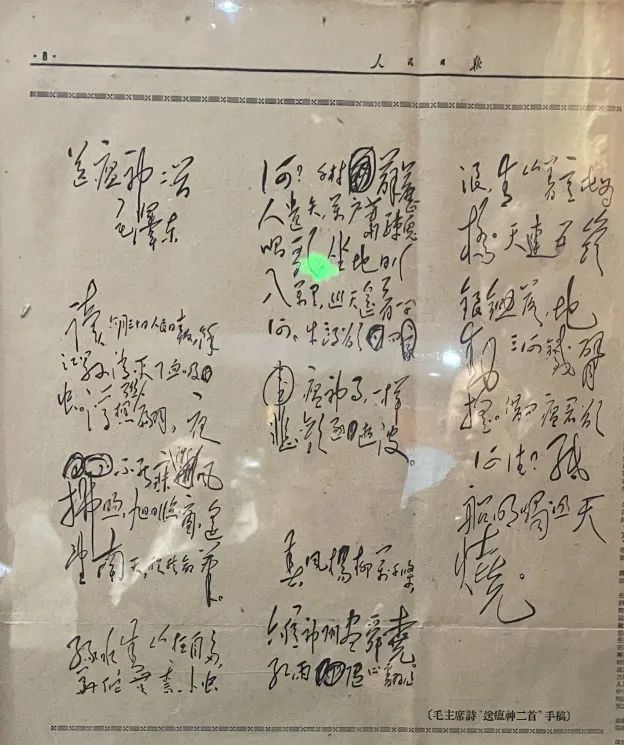 ·8·
人民日報
送瘟神二首
毛澤东
读六月三十日人民日報,餘
江縣消灭了血吸
虫。浮想联翩,夜
不能寐。微风
拂煦,旭日临窗,遥
望南天,欣然命笔。
绿水青山枉自多,
華佗無奈小虫
何?千村薜荔
人遗矢,萬户萧疏鬼
唱歌。坐地日行
八萬里,巡天遥看一千
河。牛郎欲问
瘟神事,一样
悲歡逐逝波。
春风楊柳萬千條,
六億神州盡舜堯。
紅雨随心翻作
浪,青山着意化为
桥。天連五嶺
銀鋤落,地
动三河鐵臂
摇。借问瘟君欲
何往?纸
船明燭照天
燒。
〔毛主席詩“送瘟神二首”手稿〕